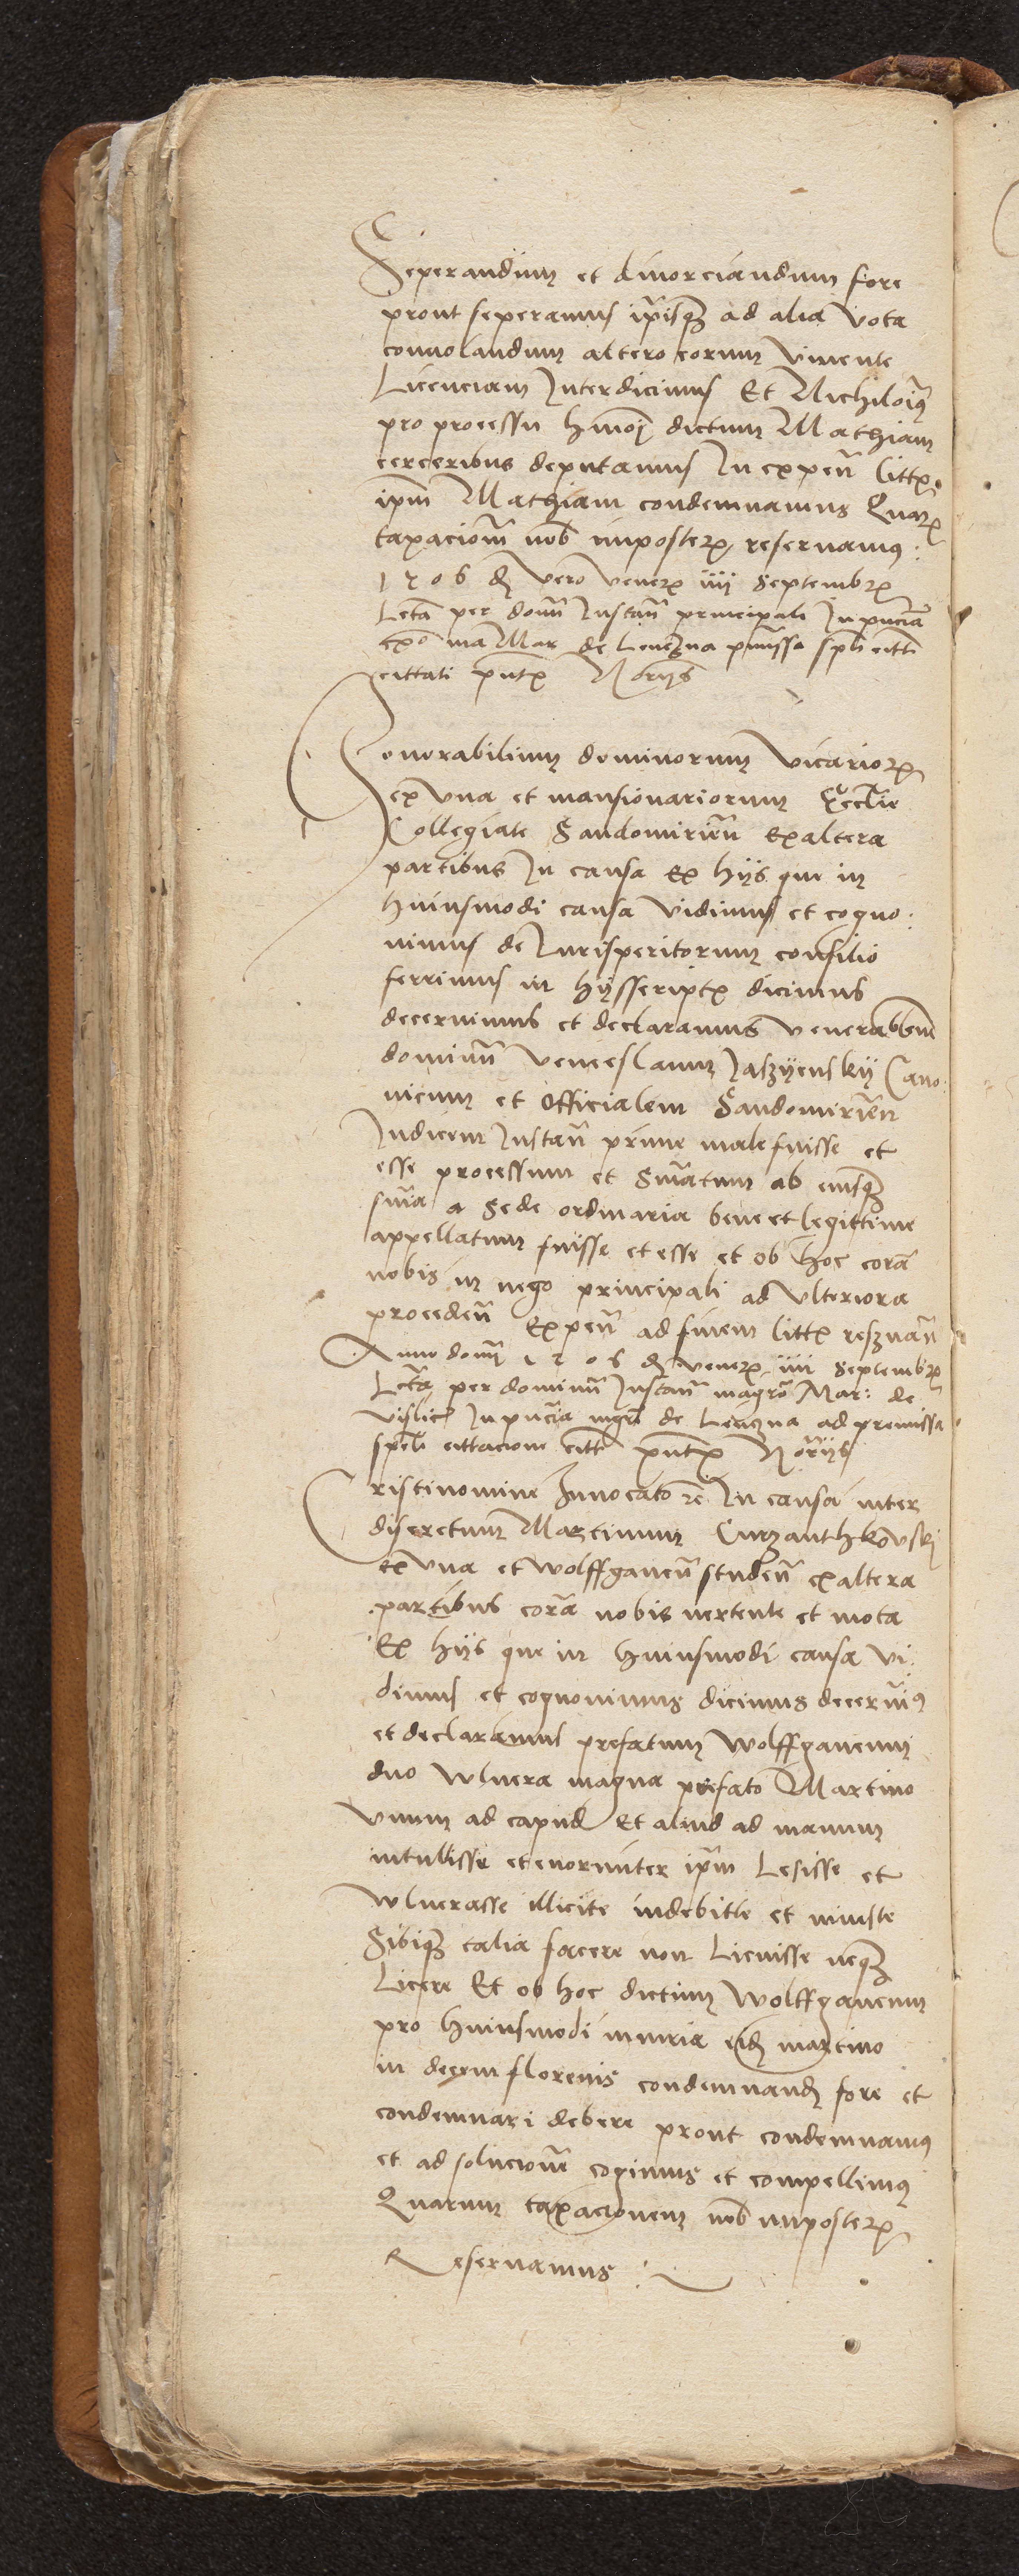 Seperandum et divorciandum fore
prout seperamus ip̃isq̃ ad alia vota
convolandum altero eorum vivente
Licenciam Interdicimus Et Nichiloĩ9
pro processu hmõi dictum Mathiam
cerceribus deputamus In expeñ littꝝ
ip̃m Mathiam condemnamus Quarꝝ
taxacionẽ nob imposterꝝ reservamus :
1506 d vero venerꝝ iiij Septembrꝝ
Lcta per domñ Instañ principali In pñcia
de Lenczna pmissa spli citt
cittati pntꝝ Norijs
Honorabilium dominorum vicariorꝝ
ex una et mansionariorum Eccl̃ie
Collegiate Sandomirieñ Ex altera
partibus In causa Ex hijs que in
huiusmodi causa vidimus et cogno:
vimus de Jurisperitorum consilio
ferrimus in hijsscriptꝝ dicimus
decernimus et declaramus venerabbem̃
dominũ venceslaum Jaszyenskij Cano:
nicum et Officialem Sandomirieñ
Judicem Instañ prime male fuisse et
esse processum et Sniatum ab eiusq̃
sñia a Sede ordinaria bene et legittime
appellatum fuisse et esse et ob hoc corã
nobis in nego principali ad ulteriora
procedeñ Expeñ ad finem littꝝ resẓvañ
Anno domĩ 1506 d venerꝝ iiij Septembrꝝ
Lcta per dominũ Instañ magr̃o Mar: de
vislicź In pñcia mgri de Lenczna ad premissa
speli cittacione citt pntꝝ Norijs
Cristi nomine Invocato re In causa inter
discretum Martinum Curzanthkovski
ex una et wolffganeũ studeñ ex altera
partibus corã nobis vertente et mota
Ex hijs que in huiusmodi causa vi:
dimus et cognovimus dicimus decernĩ9
et declaramus prefatum wolffganeum
duo wlnera magna prefato Martino
unum ad capud Et aliud ad manum
intullisse et enormiter ip̃m Lesisse et
wlnerasse illicite indebitte et iniuste
Sibiq̃ talia facere non Licuisse neq̃
Licere Et ob hoc dictum wolffganeum
pro huiusmodi iniuria eid martino
in decem florenis condemnand fore et
condemnari debere prout condemnam9
et ad solucionẽ cogimus et compellim9
Quarum taxacionem nob imposterꝝ
Reservamus :